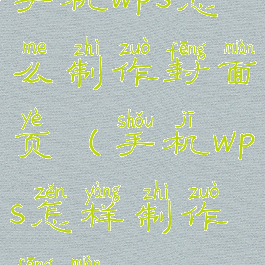 手机WPS怎
me zhì zuò fēng miàn
么制作封面
yè shǒu jī
页（手机WP
zěn yàng zhì zuò
S怎样制作